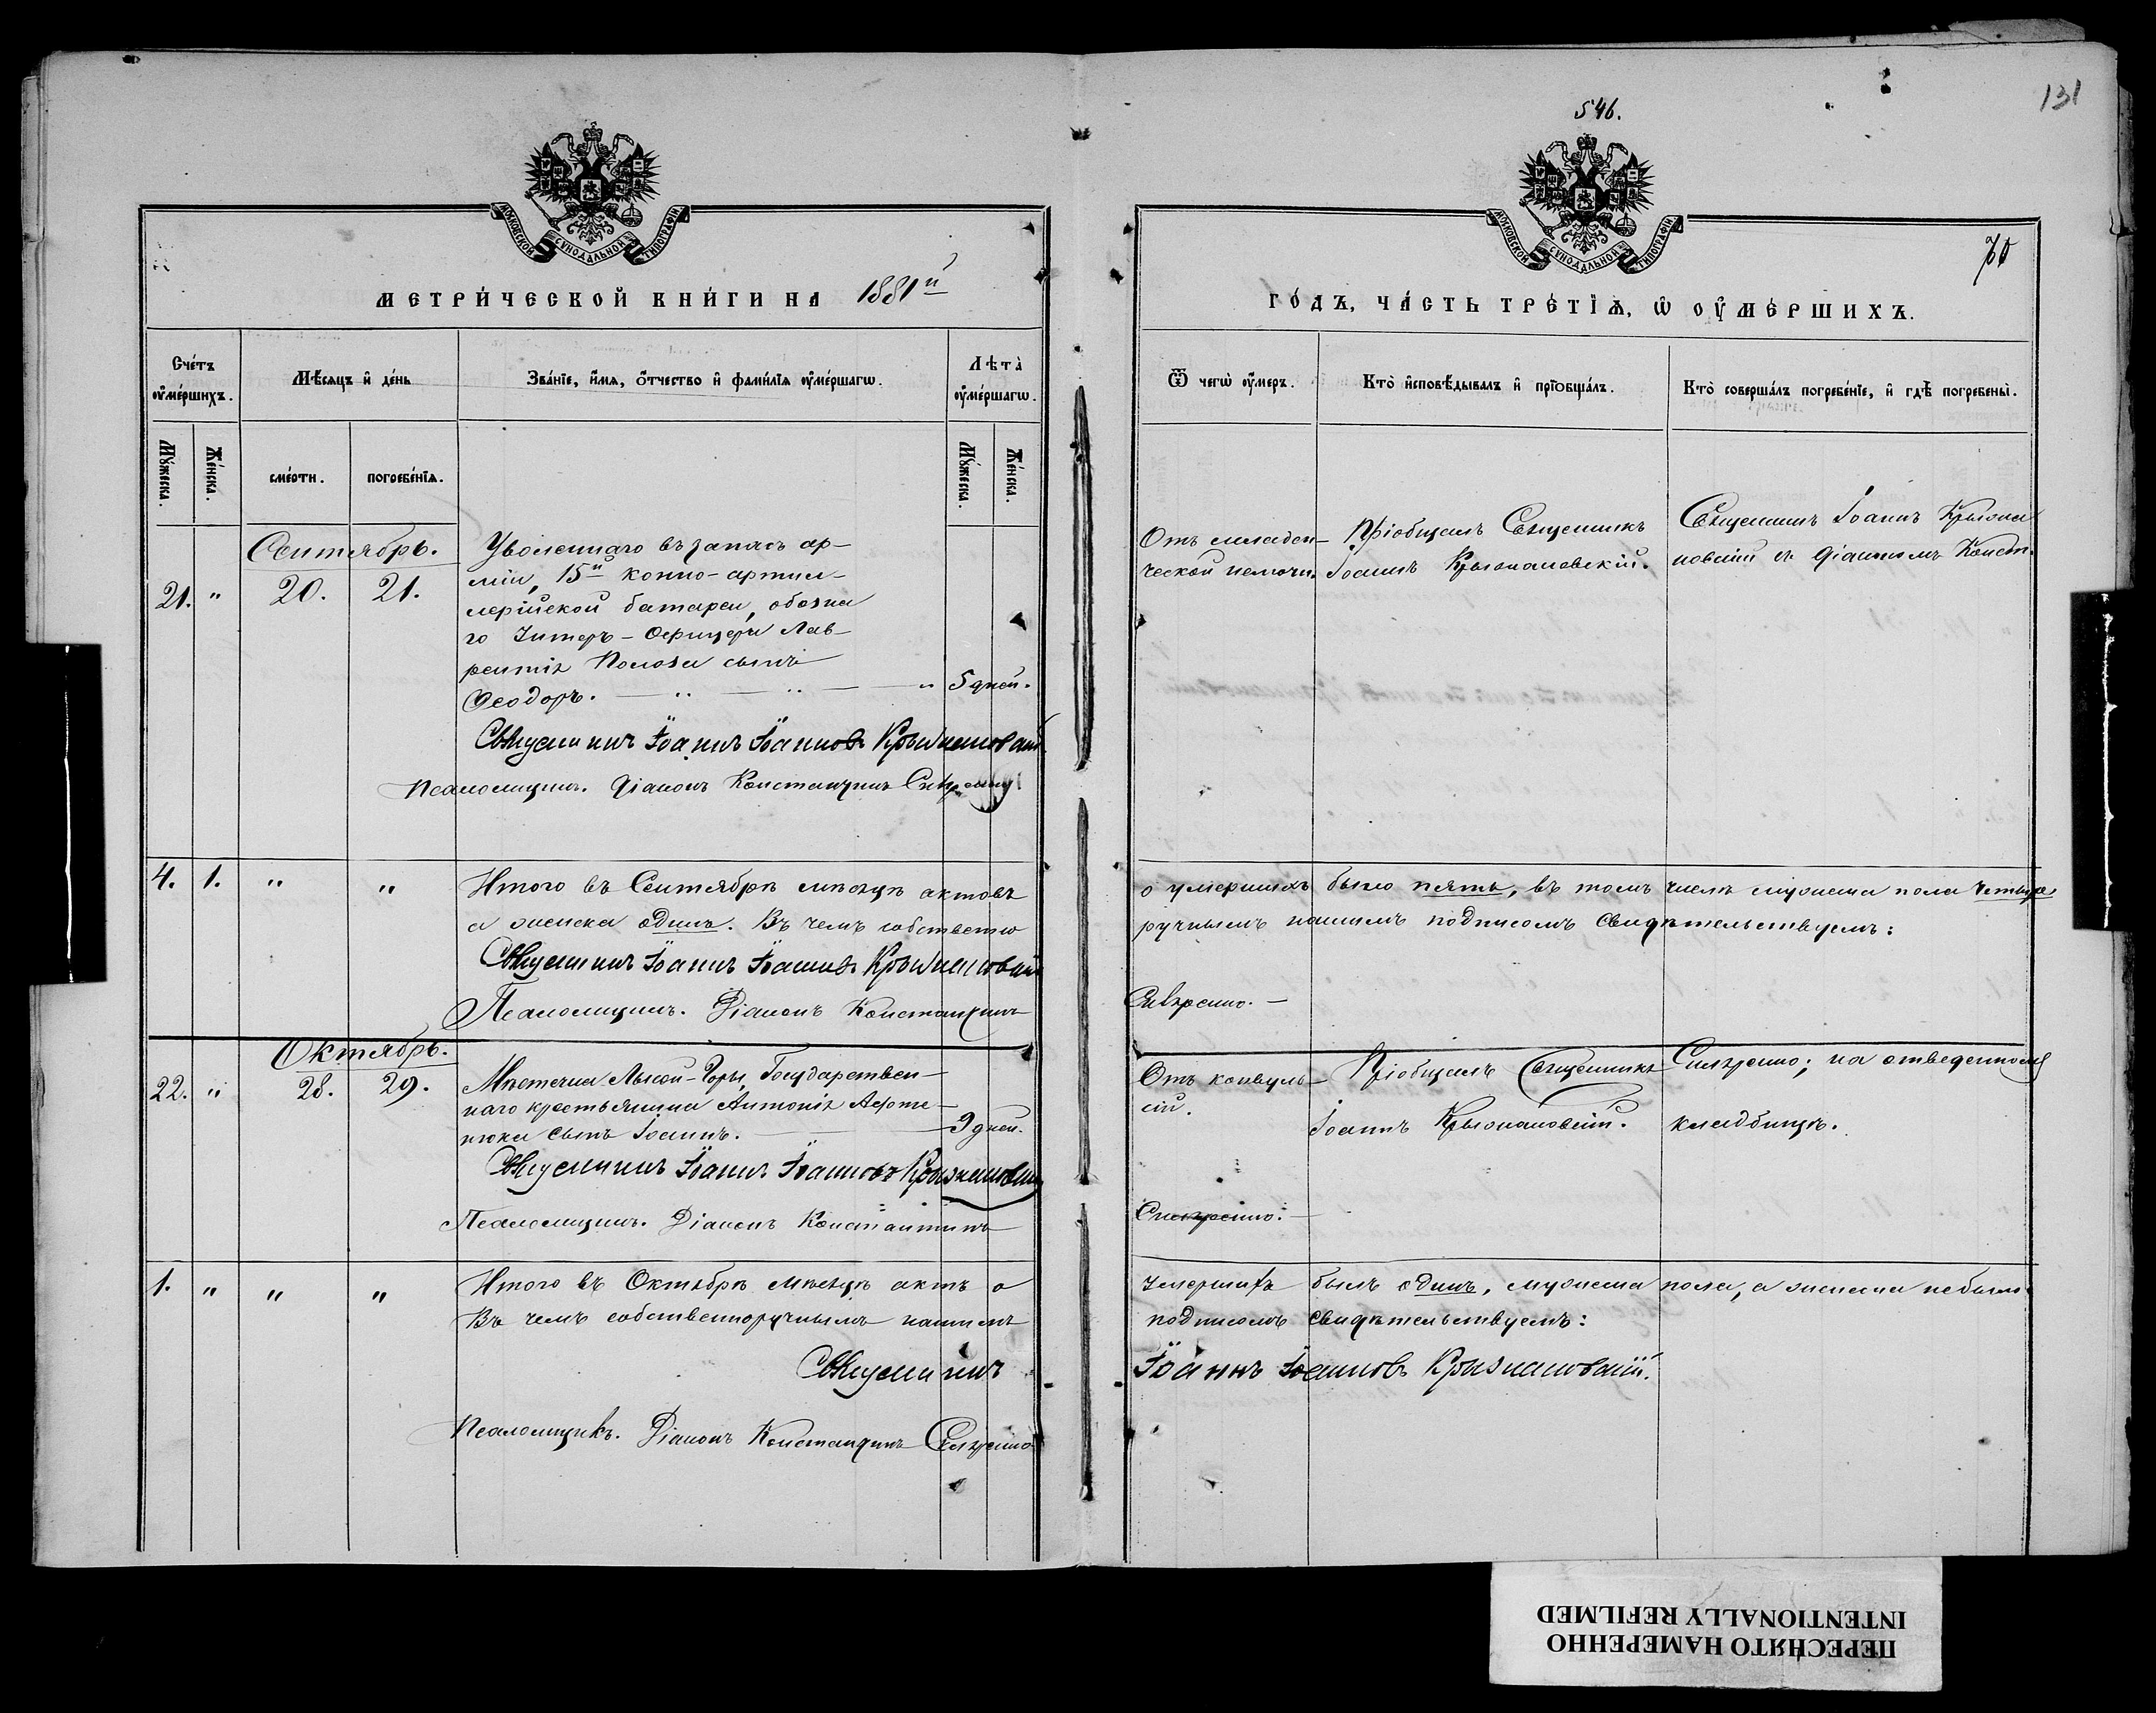 546.
131
70
МОСКОВСКОЙ СУНОДАЛЬНОЙ ТИПОГРАФІИ
МОСКОВСКОЙ СУНОДАЛЬНОЙ ТИПОГРАФІИ
МЕТРИ́ЧЕСКОЙ КНИ́ГИ НА 1881й
ГО́ДЪ, ЧА́СТЬ ТРЕ́ТІѦ, Ѡ ОУ҆МЕ́РШИХЪ.
Сче́тъ оу҆ме́ршихъ.
Мѣ́сяцъ и҆ де́нь
Зва́нїе, и҆́мя, ѻ҆́тчество и҆ фами́лїя оу҆ме́ршагѡ.
Лѣта̀ оу҆ме́ршагѡ.
Ѿ чегѡ̀ оу҆́меръ.
Кто̀ и҆сповѣ́дывалъ и҆ прїобща́лъ.
Кто̀ соверша́лъ погребе́нїе, и҆ гдѣ̀ погребены̀.
Му́жеска.
Же́нска.
сме́рти.
погребе́нїя.
Му́жеска.
Же́нска.
Сентябрь.
21. " 20. 21.
Уволеннаго въ запасъ ар-
міи, 15й конно-артил-
лерійской батареи, обозна
го Унтеръ-Офицера Лав-
рентія Полоза сынъ
Ѳеодоръ. — " — " — " 5 дней.
Отъ младен-
ческой немочи.
Пріобщалъ Священникъ
Іоаннъ Крыжановскій.
Священникъ Іоаннъ Крыжа
новскій съ Діакономъ Конст.
Священникъ Іоаннъ Іоанновъ Крыжановскій
Псаломщикъ. Діаконъ Константинъ
4. 1. " "
Итого въ Сентябрѣ мѣсяцѣ актовъ о умершихъ было пять, въ томъ числѣ мужеска пола четыре
а женска одинъ. Въ чемъ собственно ручнымъ нашимъ подписомъ свидѣтельствуемъ:
Священникъ Іоаннъ Іоанновъ Крыжановскій
Псаломщикъ. Діаконъ Константинъ
Октябрь.
22. " 28. 29.
Мѣстечка Лысой-Горы, Государствен-
наго крестьянина Антонія
сынъ Іоаннъ. — 9 дней.
Отъ конвуль-
сій.
Пріобщалъ Священникъ
Іоаннъ Крыжановскій.
на отведенномъ
кладбищѣ.
Священникъ Іоаннъ Іоанновъ Крыжановскій
Псаломщикъ. Діаконъ Константинъ
1. " " "
Итого въ Октябрѣ мѣсяцѣ актъ о умершихъ былъ одинъ, мужеска пола, а женска небыло.
Въ чемъ собственноручнымъ нашимъ подписомъ свидѣтельствуемъ:
Священникъ Іоаннъ Іоанновъ Крыжановскій.
Псаломщикъ. Діаконъ Константинъ
ПЕРЕСНЯТО НАМЕРЕННО
INTENTIONALLY REFILMED